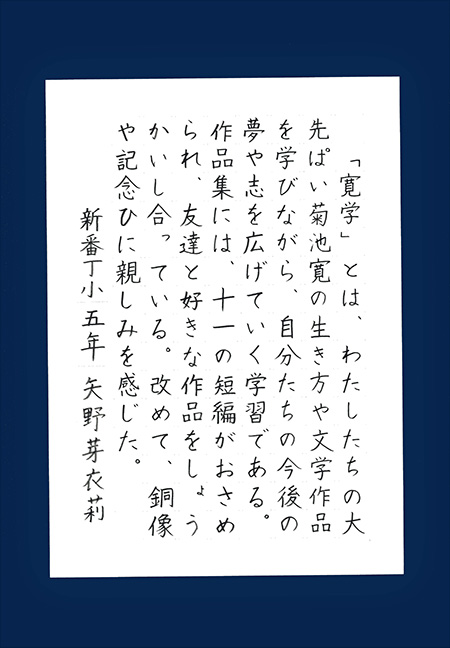 「寛学」とは、わたしたちの大
先ぱい菊池寛の生き方や文学作品
を学びながら、自分たちの今後の
夢や志を広げていく学習である。
作品集には、十一の短編がおさめ
られ、友達と好きな作品をしょう
かいし合っている。改めて、銅像
や記念ひに親しみを感じた。
新番丁小五年 矢野芽衣莉